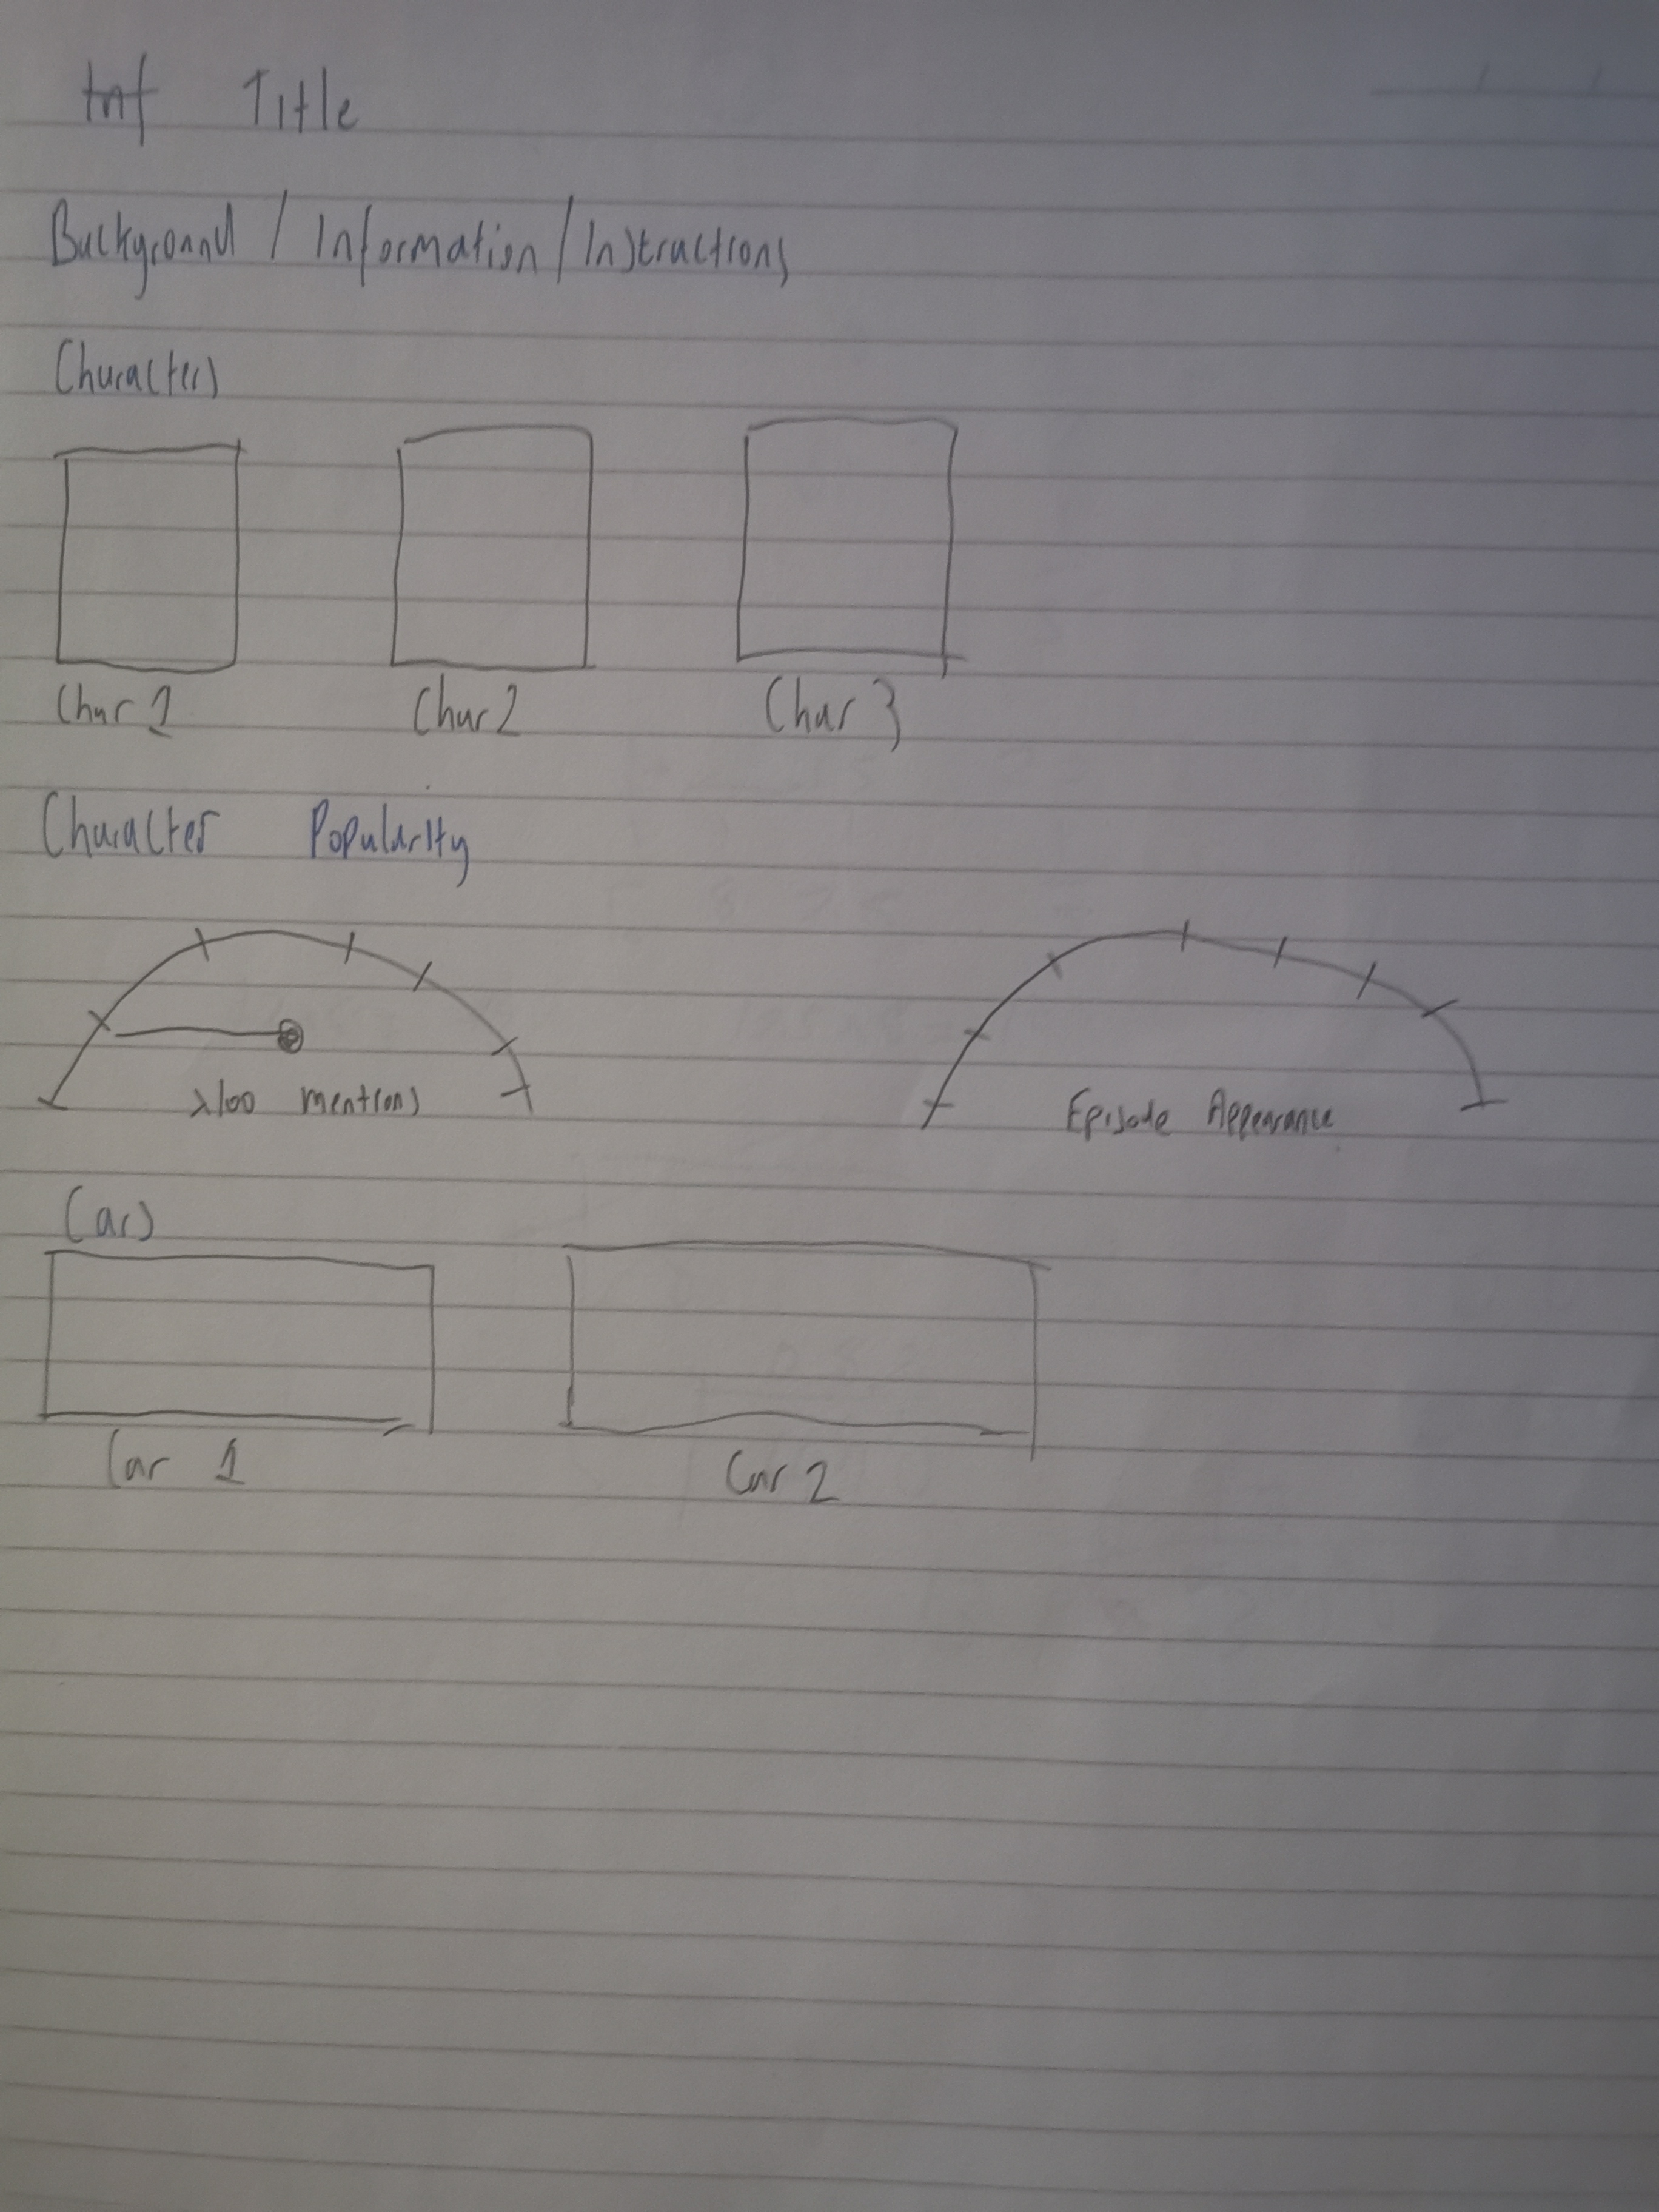 Title
Background / Information / Instructions
Characters
Char 1 Char 2 Char 3
Character Popularity
>100 mentions Episode Appearance
Cars
Car 1 Car 2